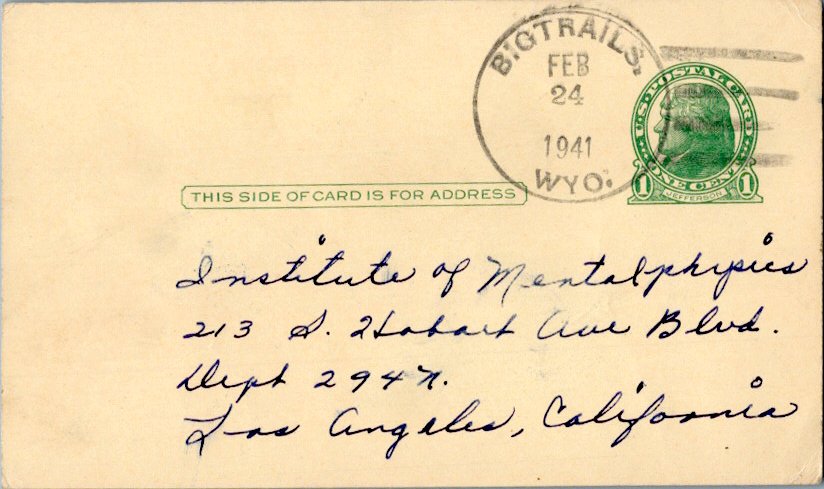 BIGTRAILS,
FEB
24
1941
WYO.
U.S. POSTAL CARD
ONE CENT
1 1
JEFFERSON
THIS SIDE OF CARD IS FOR ADDRESS
Institute of Mentalphysics
213 S. Hobart Ave Blvd.
Dept 294N.
Los Angeles, California